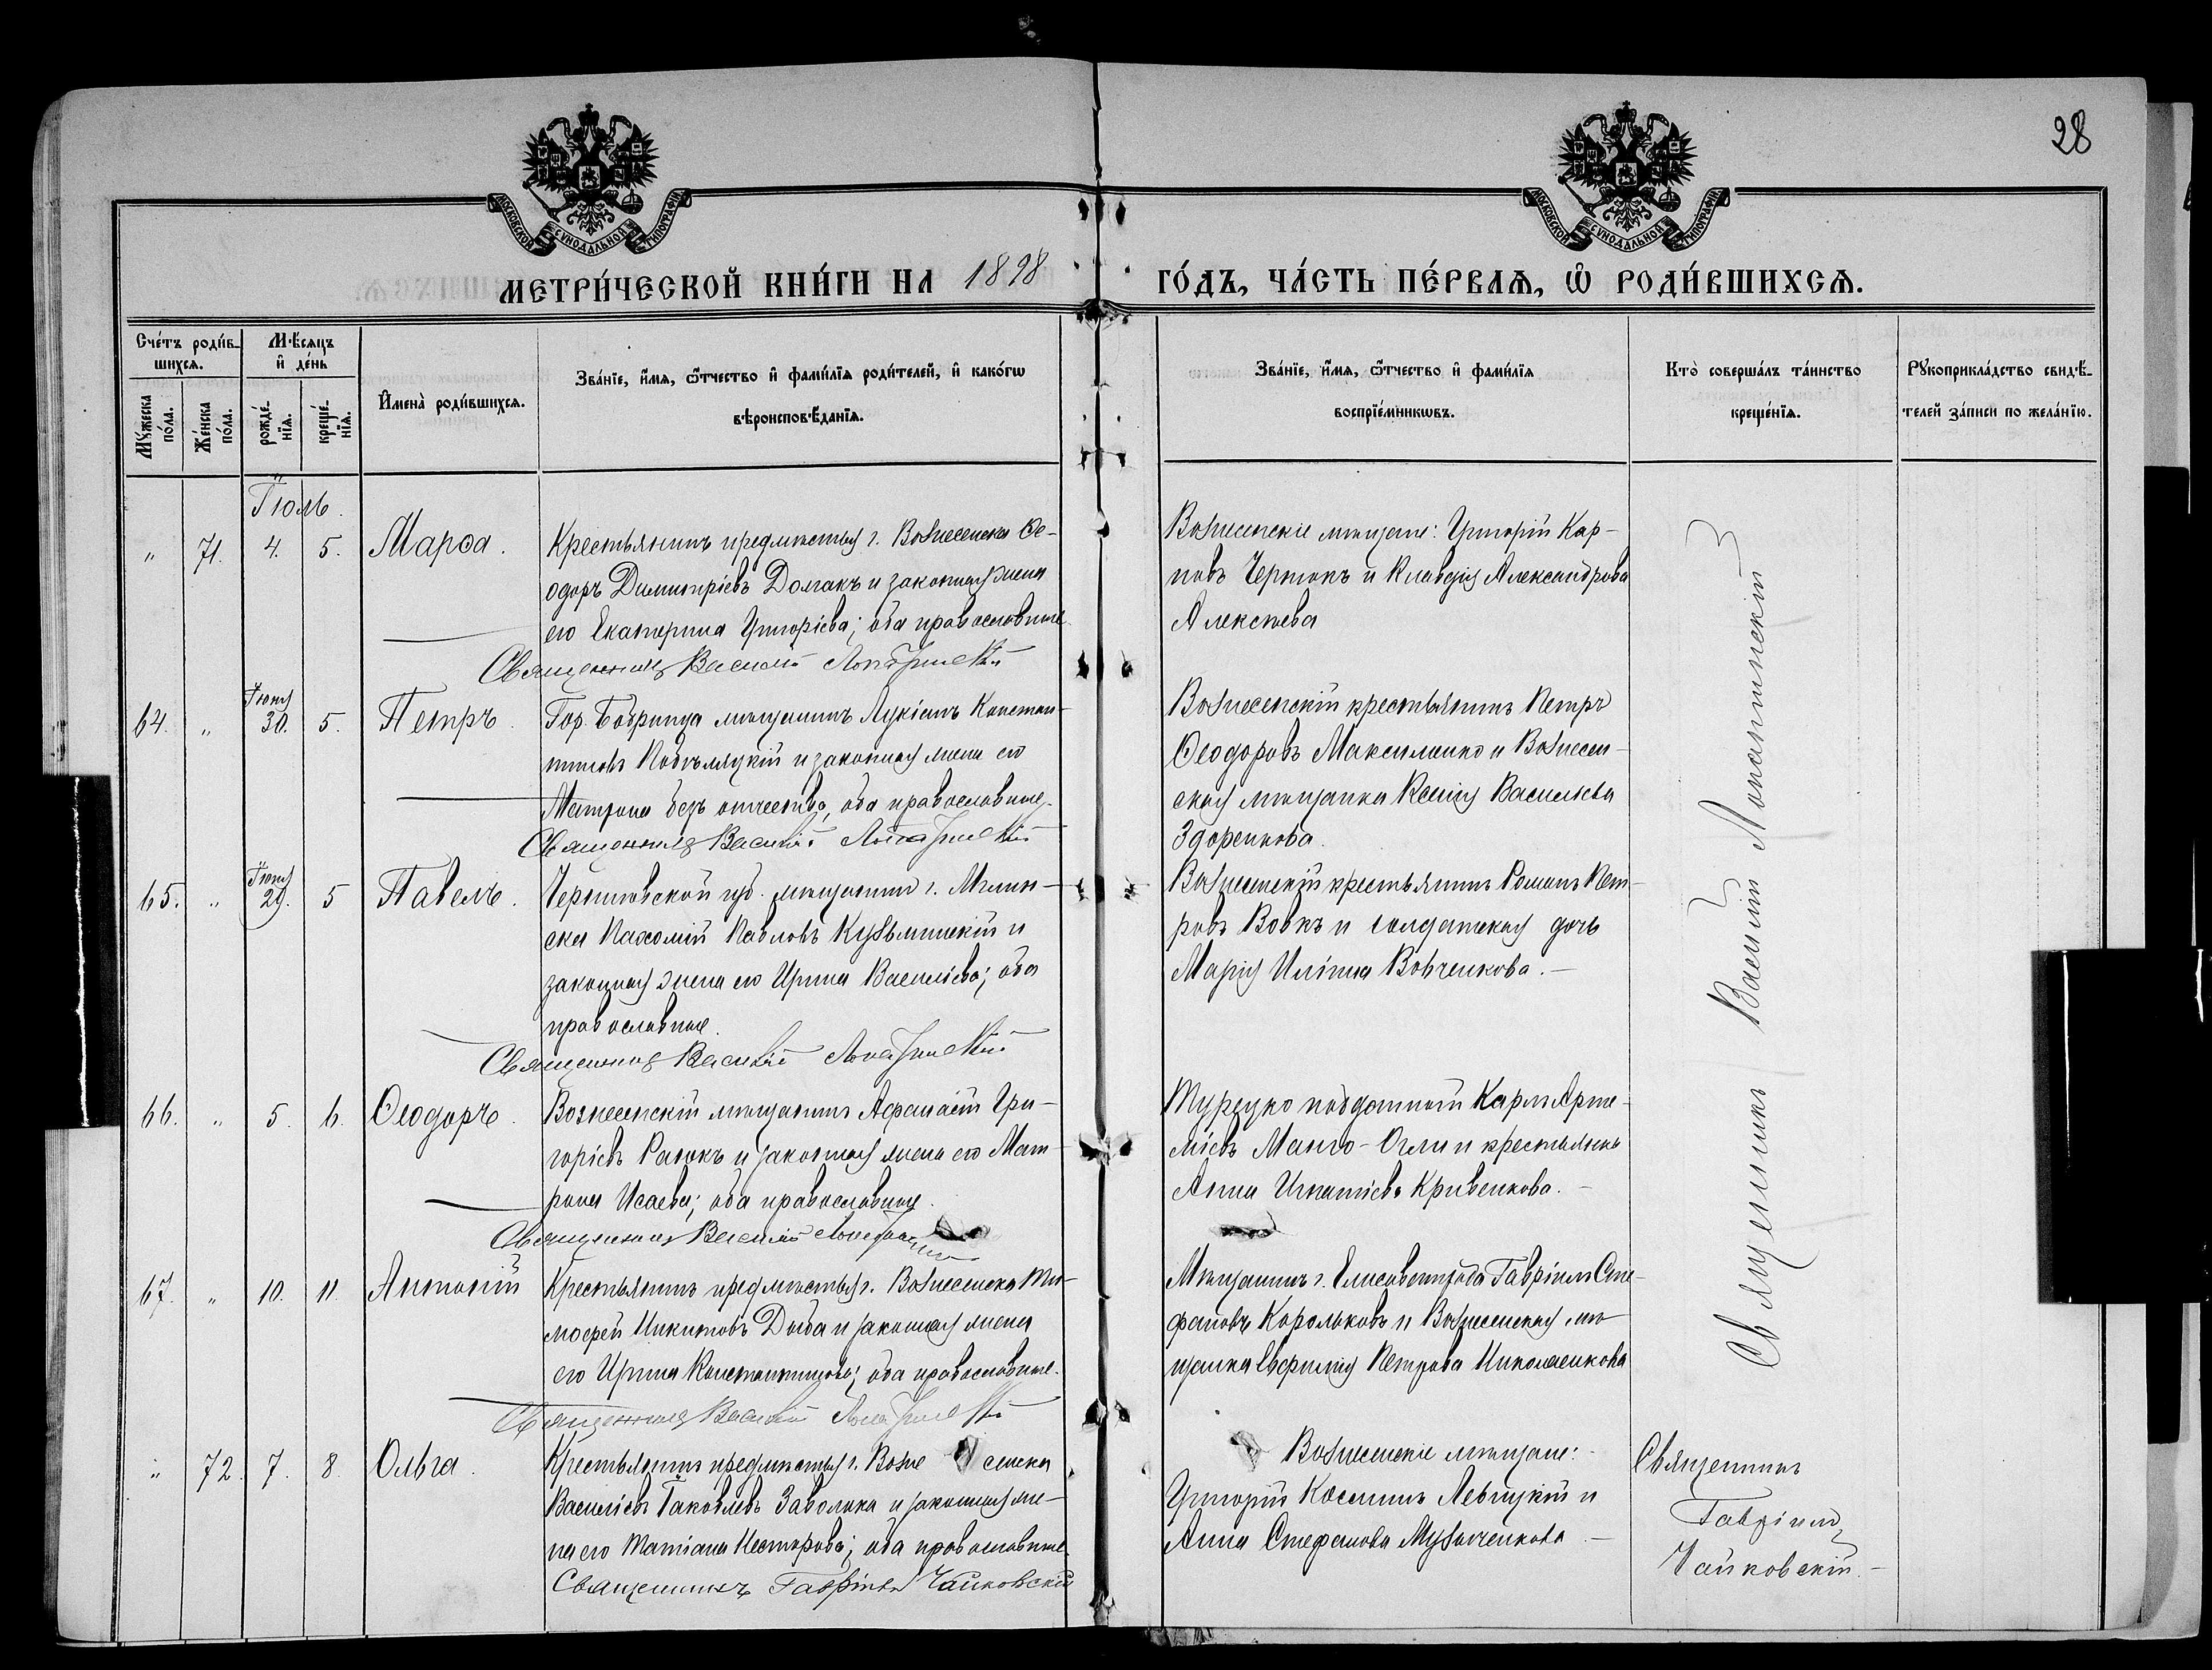 28
МОСКОВСКОЙ СѴНОДАЛЬНОЙ ТИПОГРАФІИ
МОСКОВСКОЙ СѴНОДАЛЬНОЙ ТИПОГРАФІИ
МЕТРИ́ЧЕСКОЙ КНИ́ГИ НА 1898 ГО́ДЪ, ЧА́СТЬ ПЕ́РВАѦ, Ѽ РОДИ́ВШИХСѦ.
Сче́тъ роди́в-
шихсѧ.
Мꙋ́жеска по́ла.
Же́нска по́ла.
Мѣ́сѧцъ
и҆ де́нь
рожде́-
нїѧ.
креще́-
нїѧ.
И҆мена̀ роди́вшихсѧ.
Зва́нїе, и҆́мѧ, ѻ҆́тчество и҆ фами́лїѧ роди́телей, и҆ како́гѡ
вѣроисповѣ́данїѧ.
Зва́нїе, и҆́мѧ, ѻ҆́тчество и҆ фами́лїѧ
воспрїе́мникѡвъ.
Кто̀ соверша́лъ та́инство
креще́нїѧ.
Рꙋкоприкла́дство свидѣ́-
телей за́писи по жела́нїю.
Іюль.
" 71. 4. 5. Марѳа.
Крестьянинъ предмѣстья г. Вознесенска Ѳе-
одоръ Димитріевъ Долгакъ и законная жена
его Екатерина Григорієва; оба православные.
Священникъ Василій Лопатинскій
Вознесенскіе мѣщане: Григорій Кар-
повъ Чертокъ и Клавдія Александрова
Алексѣева
64. " Іюня 30. 5. Петръ.
Гор. Бобринца мѣщанинъ Лукіанъ Констан-
тиновъ и законная жена его
Матрона безъ отчества, оба православные.
Священникъ Василій Лопатинскій
Вознесенскій крестьянинъ Петръ
Ѳеодоровъ Максименко и Вознесен-
ская мѣщанка Ксенія Васильева
Здоренкова.
65. " Іюня 29. 5 Павелъ.
Черниговской губ. мѣщанинъ г. Мглин-
ска Пахомій Павловъ Кузьминскій и
законная жена его Ирина Василіева; оба
православные.
Священникъ Василій Лопатинскій
Вознесенскій крестьянинъ Романъ Пет-
ровъ Вовкъ и солдатская дочь
Марія Иліина Вовченкова.—
66. " 5. 6. Ѳеодоръ.
Вознесенскій мѣщанинъ Аѳанасій Гри-
горіевъ и законная жена его Мат-
рона Исаева; оба православные.
Священникъ Василій Лопатинскій
Турецко подданный Карпъ Арте-
міевъ Манго-Огли и крестьянка
Анна Игнатіева Кривенкова.—
67. " 10. 11. Антоній
Крестьянинъ предмѣстья г. Вознесенска Ти-
моѳей Никитовъ Дыба и законная жена
его Ирина Константинова; оба православные.
Священникъ Василій Лопатинскій
Мѣщанинъ г. Елисаветграда Гавріилъ Сте-
фановъ Корольковъ и Вознесенская мѣ-
щанка Евфимія Петрова Николаенкова
Священникъ Василій Лопатинскій
" 72. 7. 8. Ольга.
Крестьянинъ предмѣстья г. Возне сенска
Василій Іаковлевъ Заволока и законная же-
на его Татіана Несторова; оба православные.
Священникъ Гавріилъ Чайковскій
Вознесенскіе мѣщане:
Григорій Косминъ Левицкій и
Анна Стефанова
Священникъ
Гавріилъ
Чайковскій.—